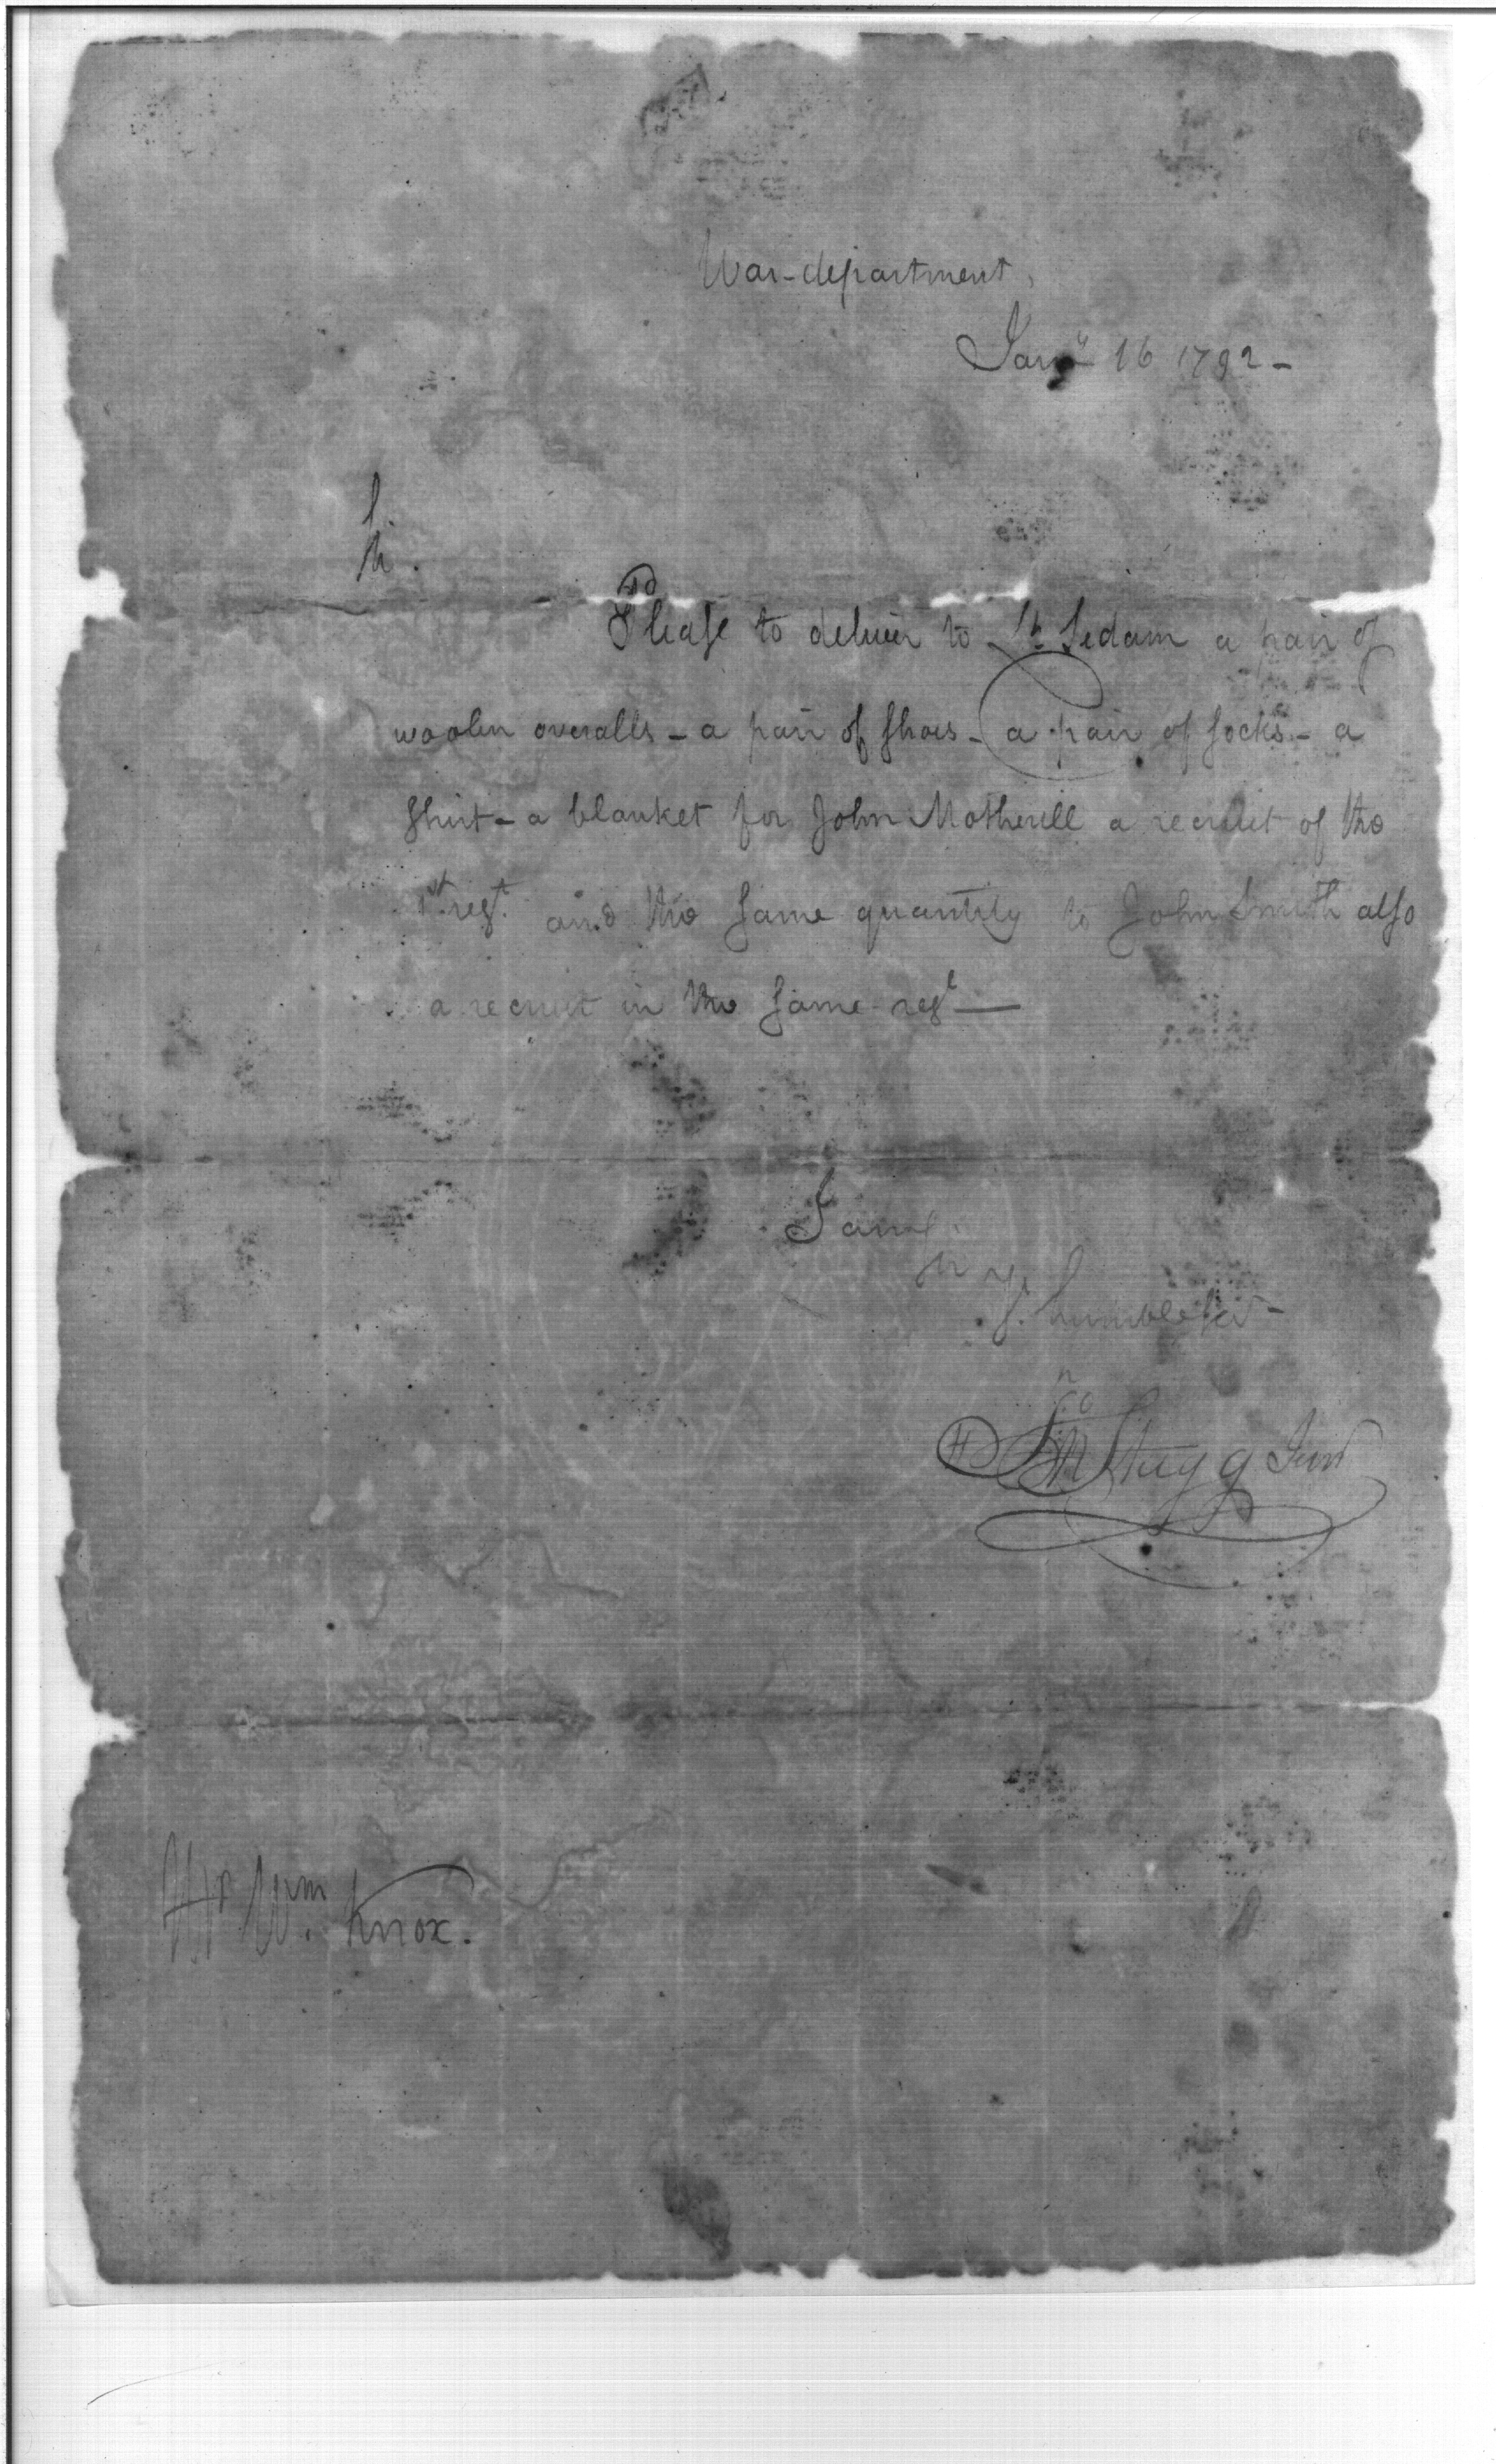 War-department,
Jany 16 1792-
Sir.
Please to deliver to Lt Sedam a pair of
woolen overalls - a pair of shoes - a pair of socks - a
shirt - a blanket for John Motherell a recruit of the
1st regt. and the same quantity to John Smith also
a recruit in the same regt —
I am
Sir
Yr. humble servt -
Stagg Junr
Mr Wm. Knox.